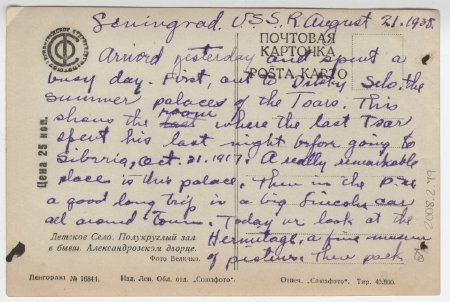 Leningrad. U.S.S.R. August 21. 1938.
ПОЧТОВАЯ
КАРТОЧКА
POŜTA KARTO
Arrived yesterday and spent a
busy day. First, out to Detsky Selo. the
summer palaces of the Tsars. This
shows the room where the last Tsar
spent his last night before going to
Siberia, Oct. 21. 1917. A really remarkable
places is this palace. Then in the P.M.
a good long trip in a big Lincoln car
all around town. Today we look at the
Hermitage, a fine museum
of pictures. Then
Цена 25 коп.
Детское Село. Полукруглый зал
в бывш. Александровском дворце.
Фото Величко.
Ленгорлит № 16844. Изд. Лен. Обл. отд. „Союзфото“. Отпеч. „Союзфото“. Тир. 40.000.
2008.2.49